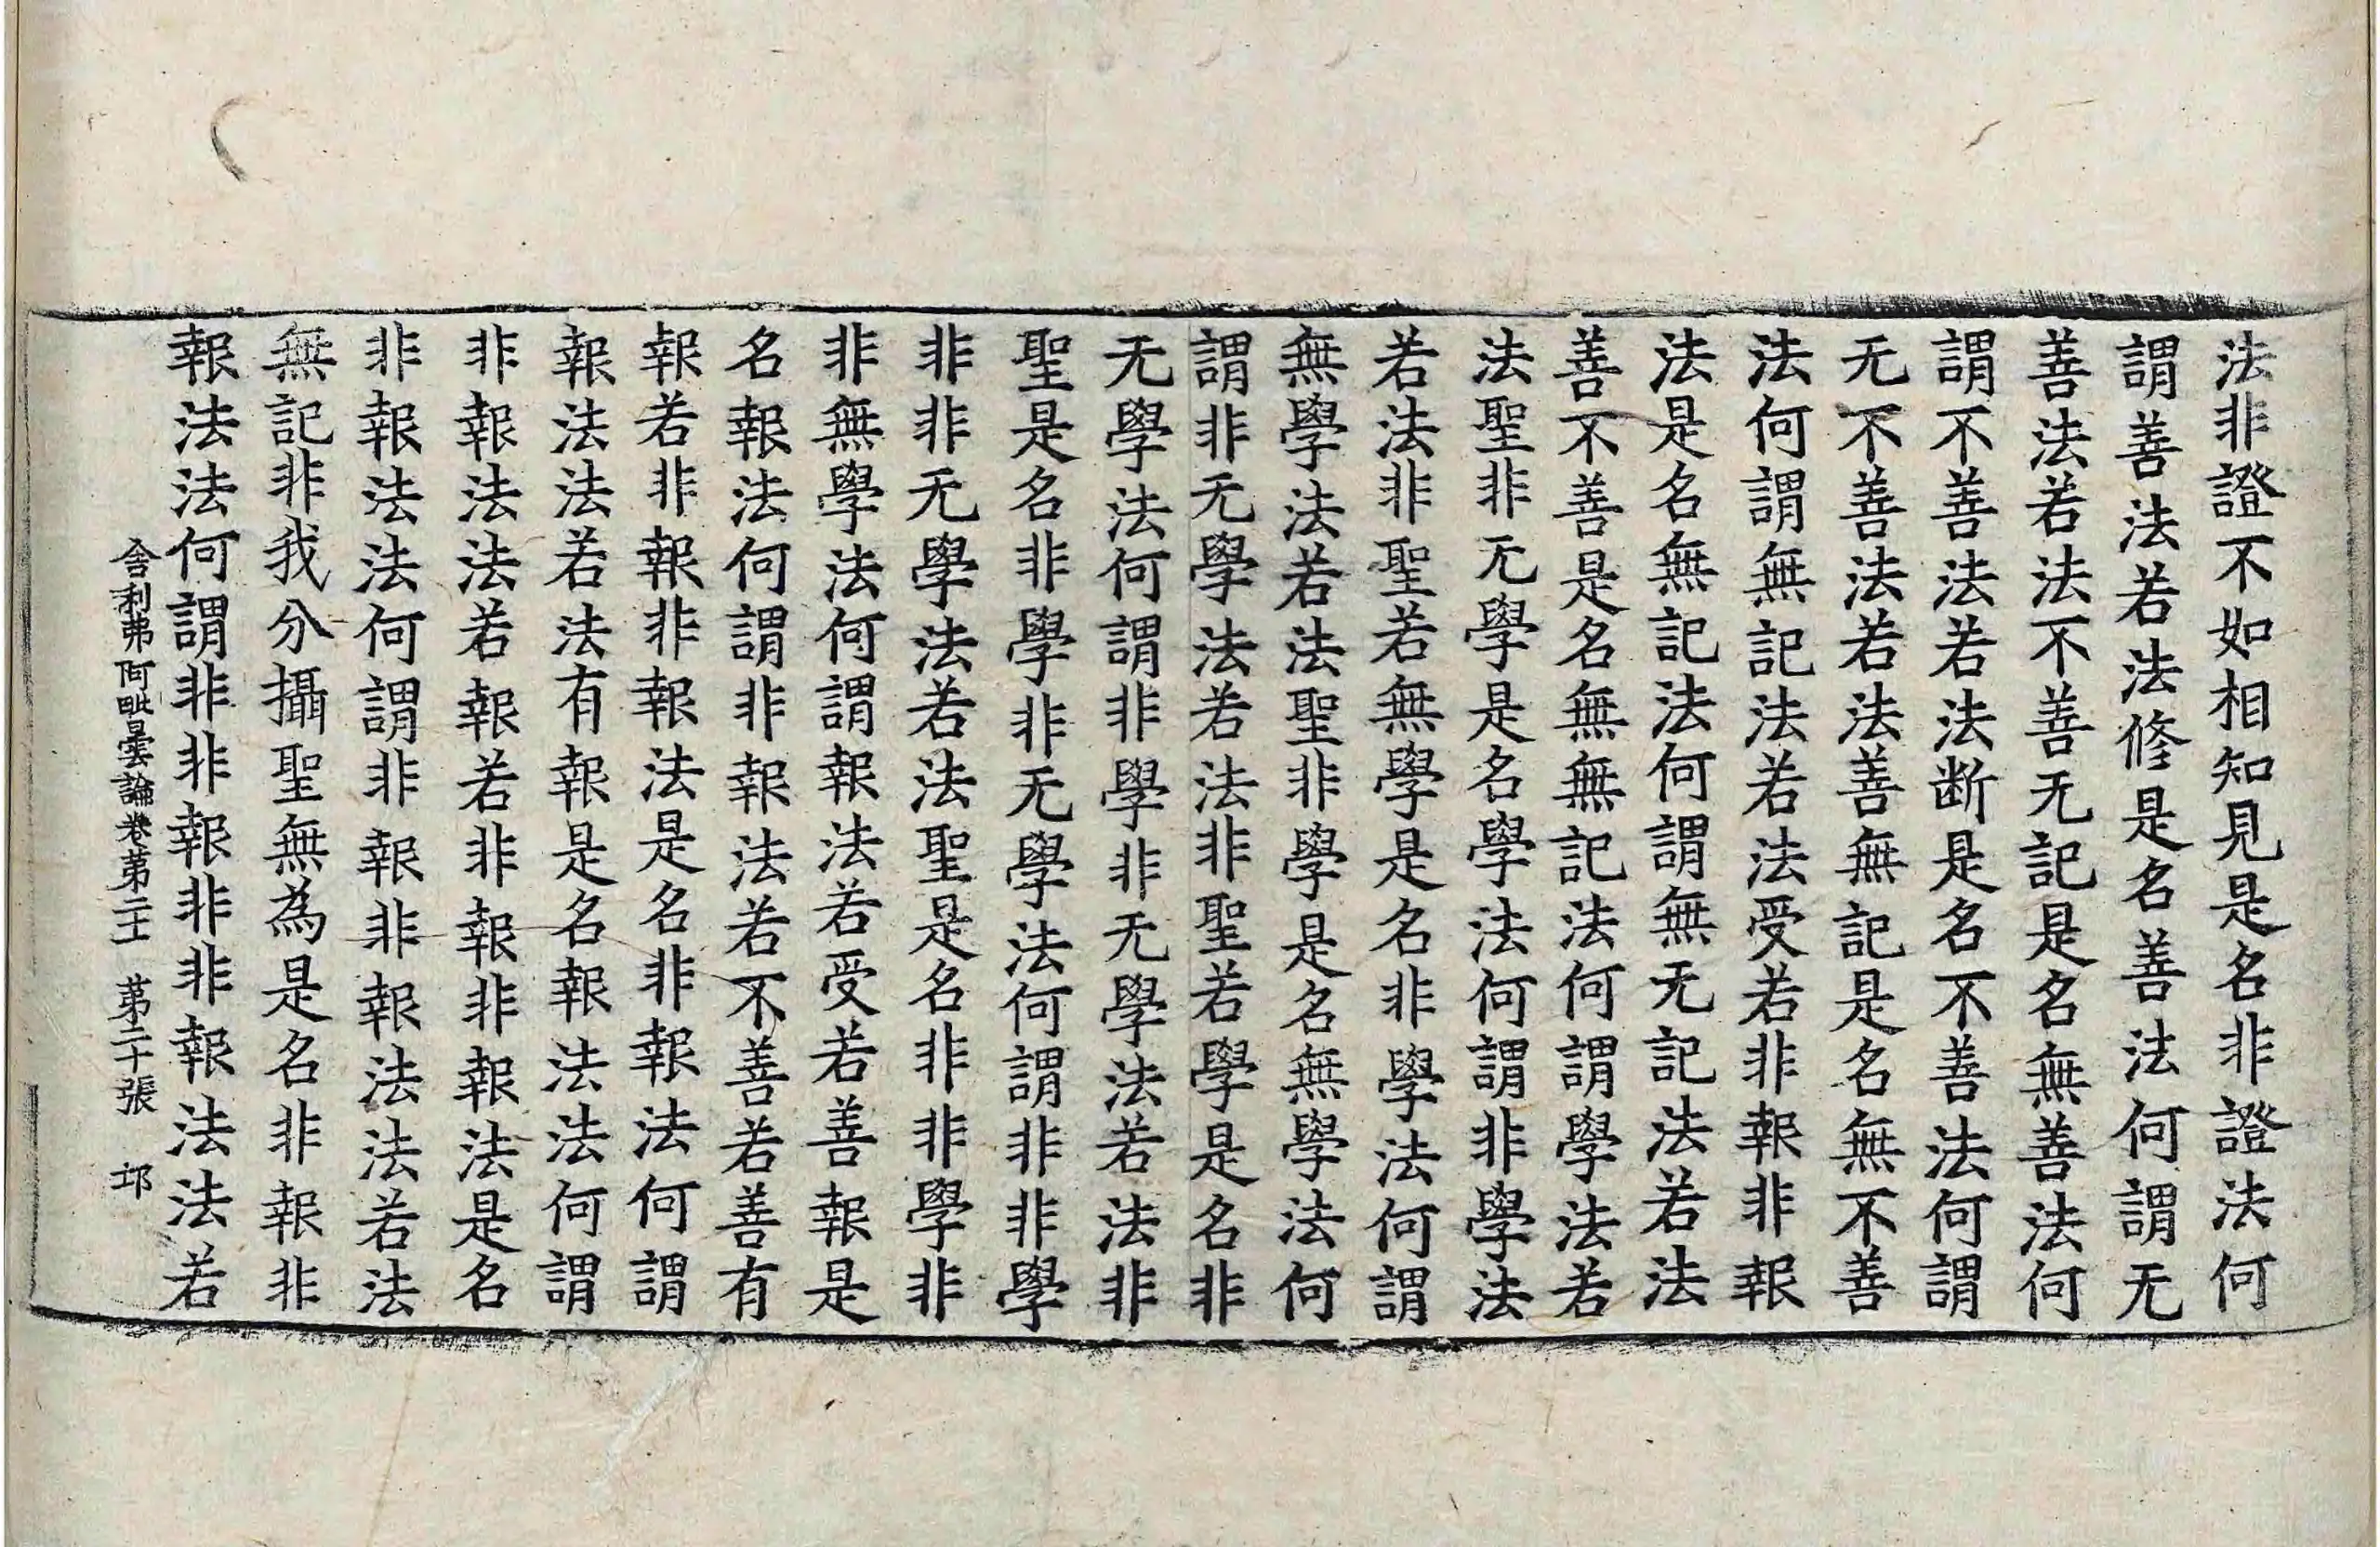 法非證不如相知見是名非證法何
謂善法若法修是名善法何謂无
善法若法不善无記是名無善法何
謂不善法若法断是名不善法何謂
无不善法若法善無記是名無不善
法何謂無記法若法受若非報非報
法是名無記法何謂無无記法若法
善不善是名無無記法何謂學法若
法聖非无學是名學法何謂非學法
若法非聖若無學是名非學法何謂
無學法若法聖非學是名無學法何
謂非无學法若法非聖若學是名非
无學法何謂非學非无學法若法非
聖是名非學非无學法何謂非非學
非非无學法若法聖是名非非學非
非無學法何謂報法若受若善報是
名報法何謂非報法若不善若善有
報若非報非報法是名非報法何謂
報法法若法有報是名報法法何謂
非報法法若報若非報非報法是名
非報法法何謂非報非報法法若法
無記非我分攝聖無為是名非報非
報法法何謂非非報非非報法法若
舍利弗阿毗曇論卷第二十 第二十張 邙